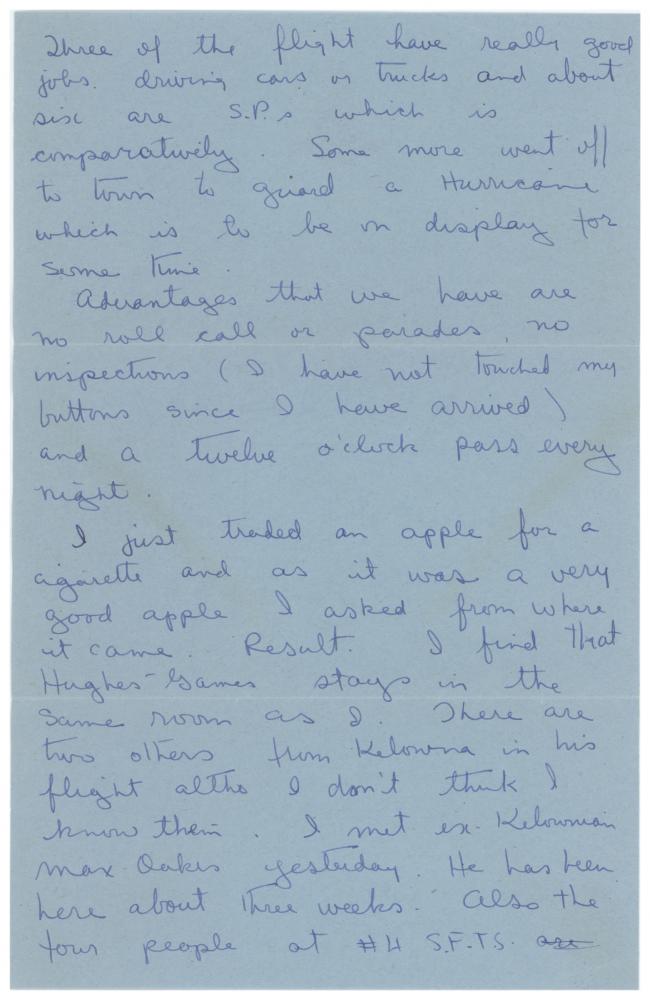 Three of the flight have really good
jobs. driving cars or trucks and about
six are S.P.s which is
comparatively. Some more went off
to town to guard a Hurricane
which is to be on display for
some time.
Advantages that we have are
no roll call or parades, no
inspections (I have not touched my
buttons since I have arrived)
and a twelve o'clock pass every
night.
I just traded an apple for a
cigarette and as it was a very
good apple I asked from where
it came. Result. I find that
Hughes-Games stays in the
same room as I. There are
two others from Kelowna in his
flight altho I don't think I
know them. I met ex-Kelownian
Max Oakes yesterday. He has been
here about three weeks. Also the
four people at #4 S.F.T.S. are